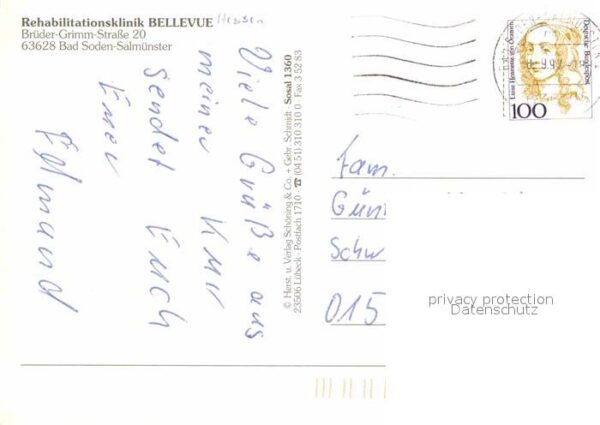 Rehabilitationsklinik BELLEVUE Hessen
Brüder-Grimm-Straße 20
63628 Bad Soden-Salmünster
Viele Grüße aus
meiner Kur
sendet Euch
Euer
© Herst. u. Verlag Schöning & Co. + Gebr. Schmidt · Sosal 1360
23506 Lübeck · Postfach 1710 · ☎ (04 51) 310 310 0 · Fax 3 52 83
Deutsche Bundespost
Luise Henriette von Oranien
100
Fam.
Gün
Schw
015
privacy protection
Datenschutz